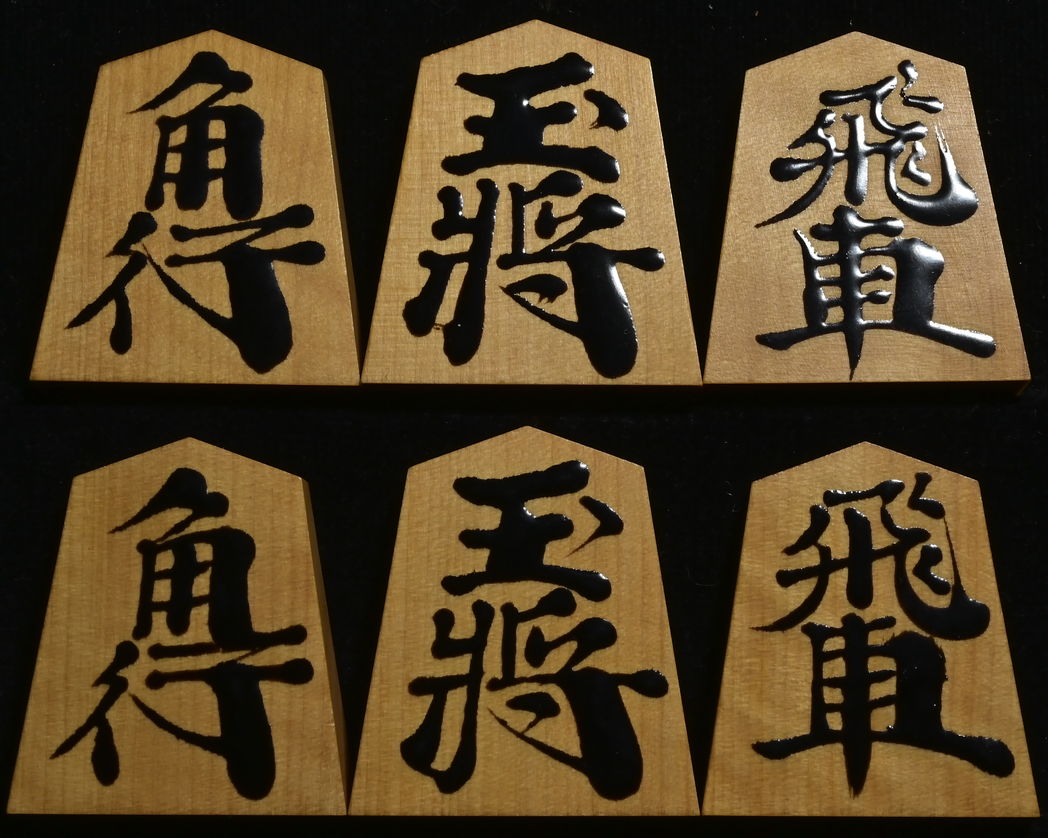 角行
玉將
飛車
角行
玉將
飛車